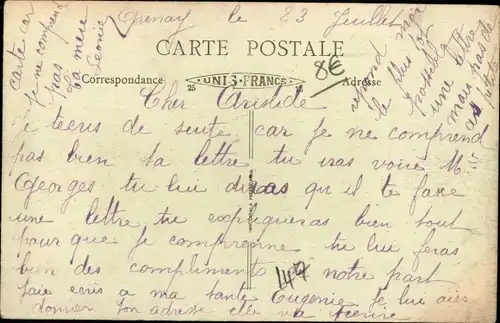 Epenay le 23 Juillet
CARTE POSTALE
Correspondance
UNIS-FRANCE
25
Adresse
8€
Cher Aristide
je tecris de suite car je ne comprend
pas bien ta lettre tu iras voire M.
Georges tu lui diras qu il te faxe
une lettre tu expliqueras bien tout
pour que je comprenne tu lui feras
bien des compliments notre part
149
jaie ecris a ma tante Eugenie je lui aies
donner ton adresse elle va
carte car
je ne comprend
pas
ta mère
Leonie
repond moi
le plus tot
possible
une lettre
mais pas de